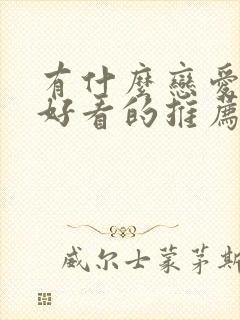 有什麼戀愛
好看的推薦
威尔士蒙茅斯